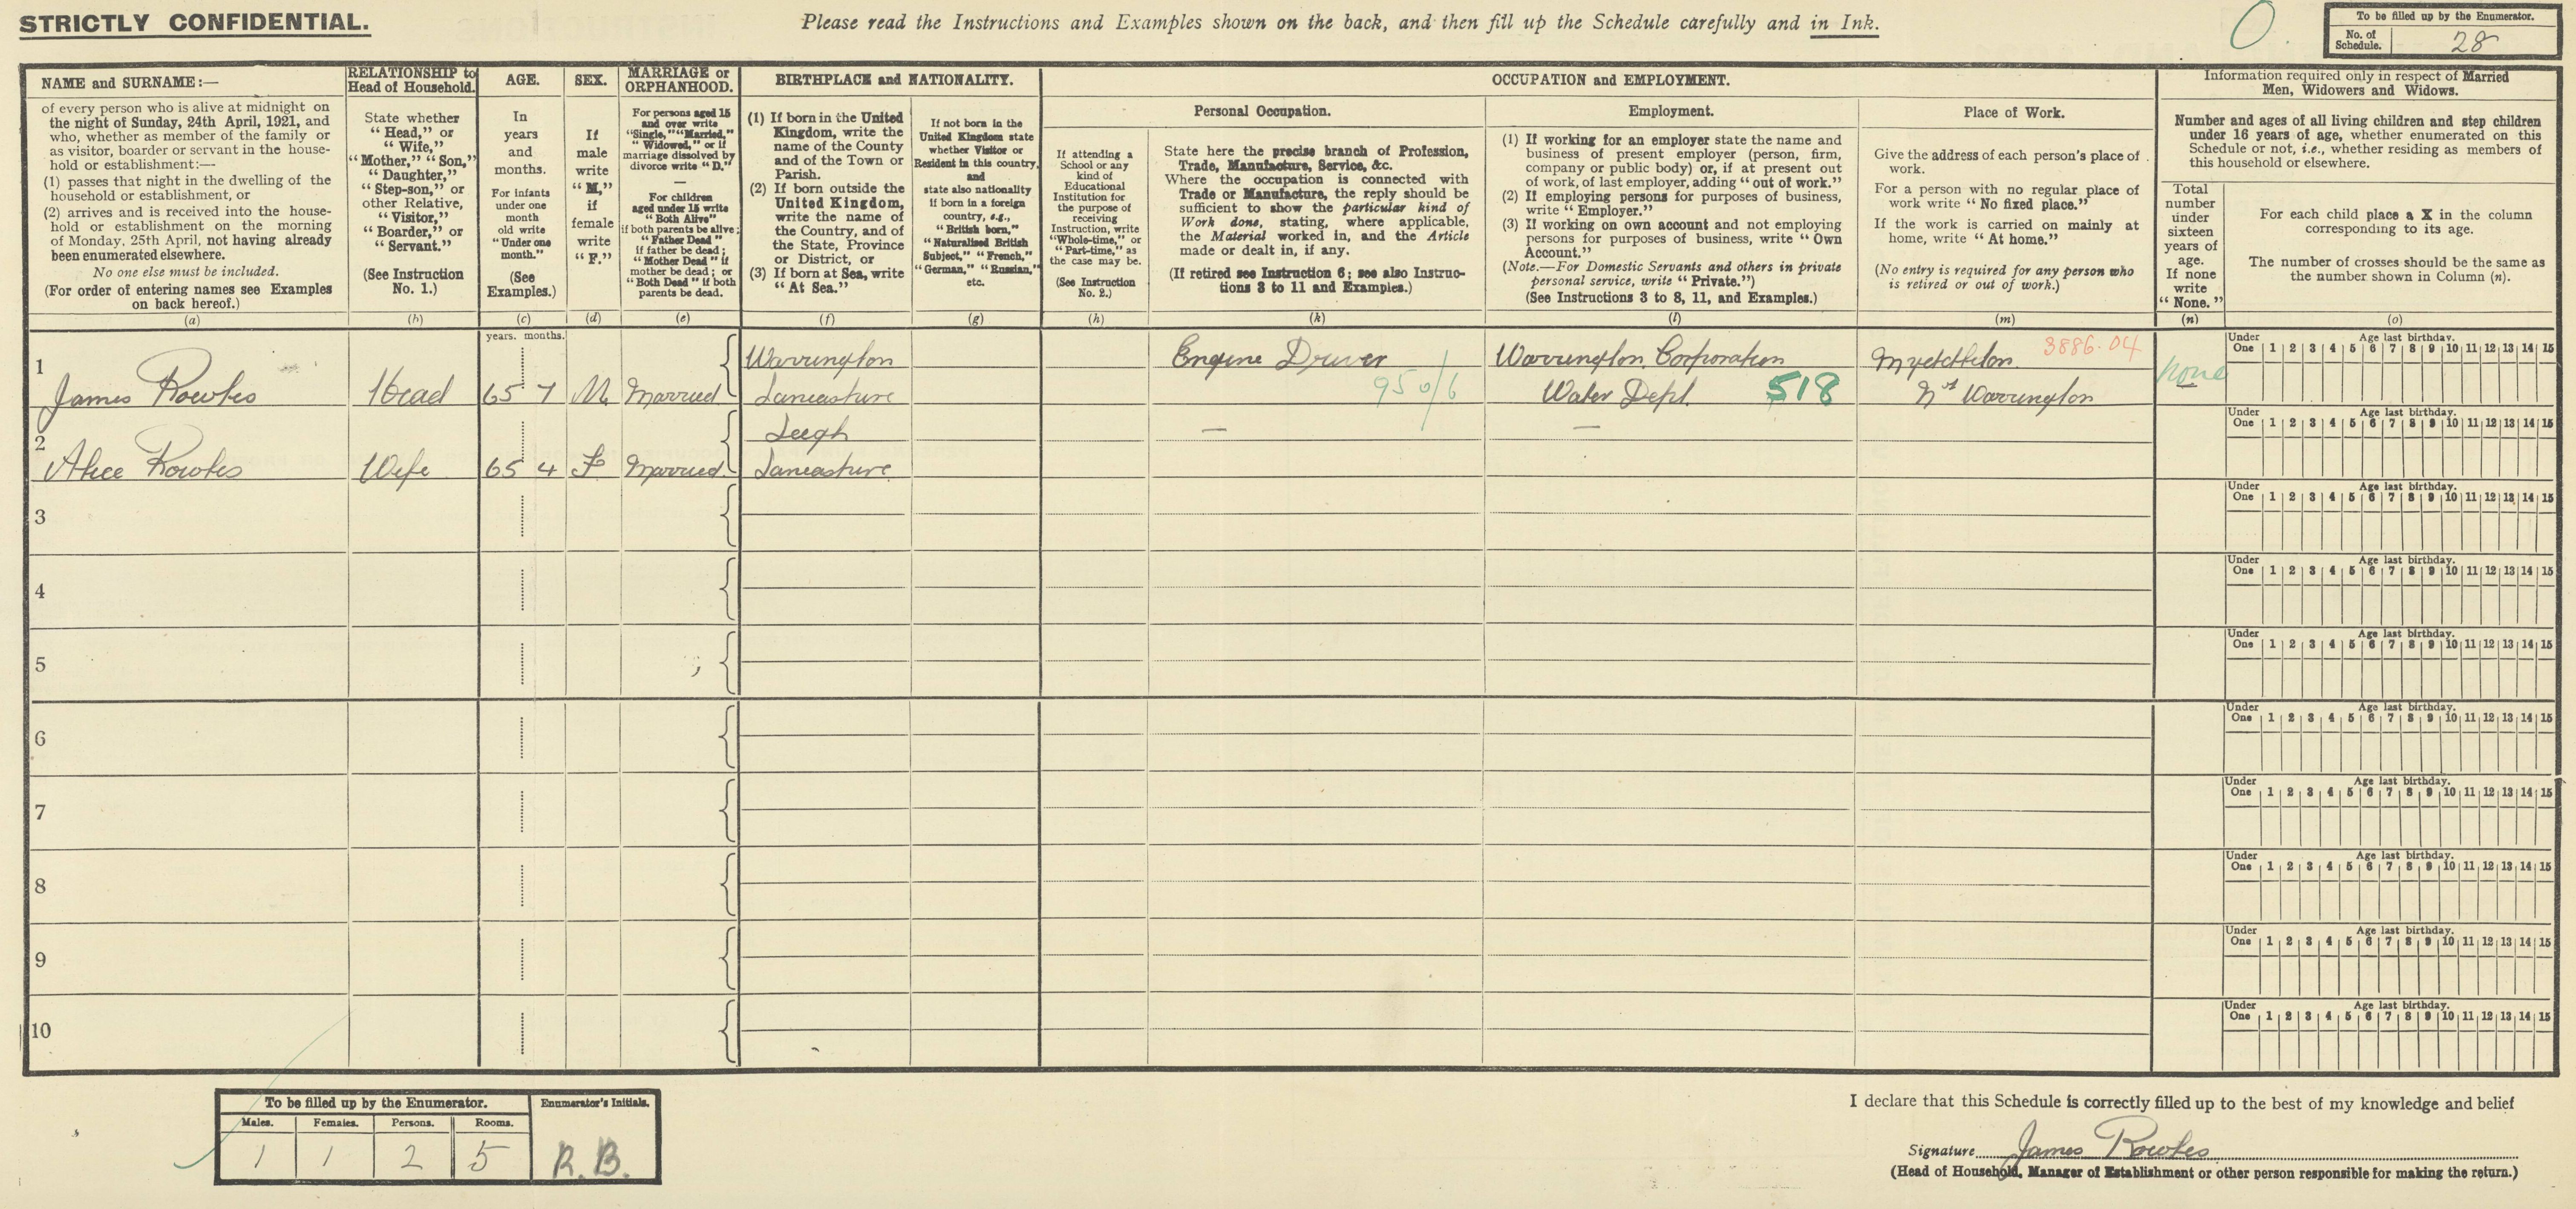 STRICTLY CONFIDENTIAL.
Please read the Instructions and Examples shown on the back, and then fill up the Schedule carefully and in Ink.
O
To be filled up by the Enumerator.
No. of Schedule. 28
NAME and SURNAME:—
of every person who is alive at midnight on
the night of Sunday, 24th April, 1921, and
who, whether as member of the family or
as visitor, boarder or servant in the house-
hold or establishment:—
(1) passes that night in the dwelling of the
household or establishment, or
(2) arrives and is received into the house-
hold or establishment on the morning
of Monday, 25th April, not having already
been enumerated elsewhere.
No one else must be included.
(For order of entering names see Examples
on back hereof.)
(a)
RELATIONSHIP to
Head of Household.
State whether
“Head,” or
“Wife,”
“Mother,” “Son,”
“Daughter,”
“Step-son,” or
other Relative,
“Visitor,”
“Boarder,” or
“Servant.”
(See Instruction
No. 1.)
(b)
AGE.
In
years
and
months.
For infants
under one
month
old write
“Under one
month.”
(See
Examples.)
(c)
SEX.
If
male
write
“M,”
if
female
write
“F.”
(d)
MARRIAGE or
ORPHANHOOD.
For persons aged 15
and over write
“Single,” “Married,”
“Widowed,” or if
marriage dissolved by
divorce write “D.”
—
For children
aged under 15 write
“Both Alive”
if both parents be alive;
“Father Dead”
if father be dead;
“Mother Dead” if
mother be dead; or
“Both Dead” if both
parents be dead.
(e)
BIRTHPLACE and NATIONALITY.
(1) If born in the United
Kingdom, write the
name of the County
and of the Town or
Parish.
(2) If born outside the
United Kingdom,
write the name of
the Country, and of
the State, Province
or District, or
(3) If born at Sea, write
“At Sea.”
(f)
If not born in the
United Kingdom state
whether Visitor or
Resident in this country,
and
state also nationality
if born in a foreign
country, e.g.,
“British born,”
“Naturalised British
Subject,” “French,”
“German,” “Russian,”
etc.
(g)
OCCUPATION and EMPLOYMENT.
If attending a
School or any
kind of
Educational
Institution for
the purpose of
receiving
Instruction, write
“Whole-time,” or
“Part-time,” as
the case may be.
(See Instruction
No. 2.)
(h)
Personal Occupation.
State here the precise branch of Profession,
Trade, Manufacture, Service, &c.
Where the occupation is connected with
Trade or Manufacture, the reply should be
sufficient to show the particular kind of
Work done, stating, where applicable,
the Material worked in, and the Article
made or dealt in, if any.
(If retired see Instruction 6; see also Instruc-
tions 3 to 11 and Examples.)
(k)
Employment.
(1) If working for an employer state the name and
business of present employer (person, firm,
company or public body) or, if at present out
of work, of last employer, adding “out of work.”
(2) If employing persons for purposes of business,
write “Employer.”
(3) If working on own account and not employing
persons for purposes of business, write “Own
Account.”
(Note.—For Domestic Servants and others in private
personal service, write “Private.”)
(See Instructions 3 to 8, 11, and Examples.)
(l)
Place of Work.
Give the address of each person's place of
work.
For a person with no regular place of
work write “No fixed place.”
If the work is carried on mainly at
home, write “At home.”
(No entry is required for any person who
is retired or out of work.)
(m)
Information required only in respect of Married
Men, Widowers and Widows.
Number and ages of all living children and step children
under 16 years of age, whether enumerated on this
Schedule or not, i.e., whether residing as members of
this household or elsewhere.
Total
number
under
sixteen
years of
age.
If none
write
“None.”
(n)
For each child place a X in the column
corresponding to its age.
The number of crosses should be the same as
the number shown in Column (n).
(o)
years. months.
1 Warrington Engine Driver Warrington Corporation 3886.04
James Rowles Head 65 7 M Married Lancashire 950/6 Water Dept. 518 Nr Warrington none
Under One 1 2 3 4 5 6 7 8 9 10 11 12 13 14 15
Age last birthday.
2 Leigh — —
Alice Rowles Wife 65 4 F Married Lancashire
Under One 1 2 3 4 5 6 7 8 9 10 11 12 13 14 15
Age last birthday.
3
Under One 1 2 3 4 5 6 7 8 9 10 11 12 13 14 15
Age last birthday.
4
Under One 1 2 3 4 5 6 7 8 9 10 11 12 13 14 15
Age last birthday.
5
Under One 1 2 3 4 5 6 7 8 9 10 11 12 13 14 15
Age last birthday.
6
Under One 1 2 3 4 5 6 7 8 9 10 11 12 13 14 15
Age last birthday.
7
Under One 1 2 3 4 5 6 7 8 9 10 11 12 13 14 15
Age last birthday.
8
Under One 1 2 3 4 5 6 7 8 9 10 11 12 13 14 15
Age last birthday.
9
Under One 1 2 3 4 5 6 7 8 9 10 11 12 13 14 15
Age last birthday.
10
Under One 1 2 3 4 5 6 7 8 9 10 11 12 13 14 15
Age last birthday.
To be filled up by the Enumerator.
Males. Females. Persons. Rooms.
1 1 2 5
Enumerator's Initials.
R. B.
I declare that this Schedule is correctly filled up to the best of my knowledge and belief
Signature James Rowles
(Head of Household, Manager of Establishment or other person responsible for making the return.)